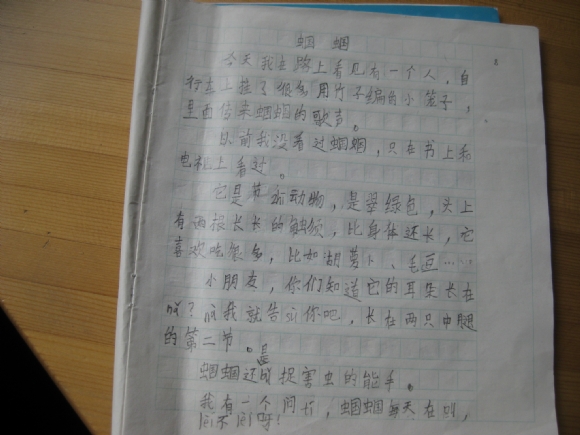 蝈蝈
今天我在路上看见有一个人，自
行车上挂了很多用竹子编的小笼子，
里面传来蝈蝈的歌声。
以前我没看过蝈蝈，只在书上和
电视上看过。
它是节肢动物，是翠绿色，头上
有两根长长的触须，比身体还长，它
喜欢吃很多，比如胡萝卜、毛豆……
小朋友，你们知道它的耳朵长在
哪？让我就告诉你吧，长在两只中腿
的第二节。
蝈蝈还是捉害虫的能手。
我有一个问题，蝈蝈每天在叫，
闷不闷呀！